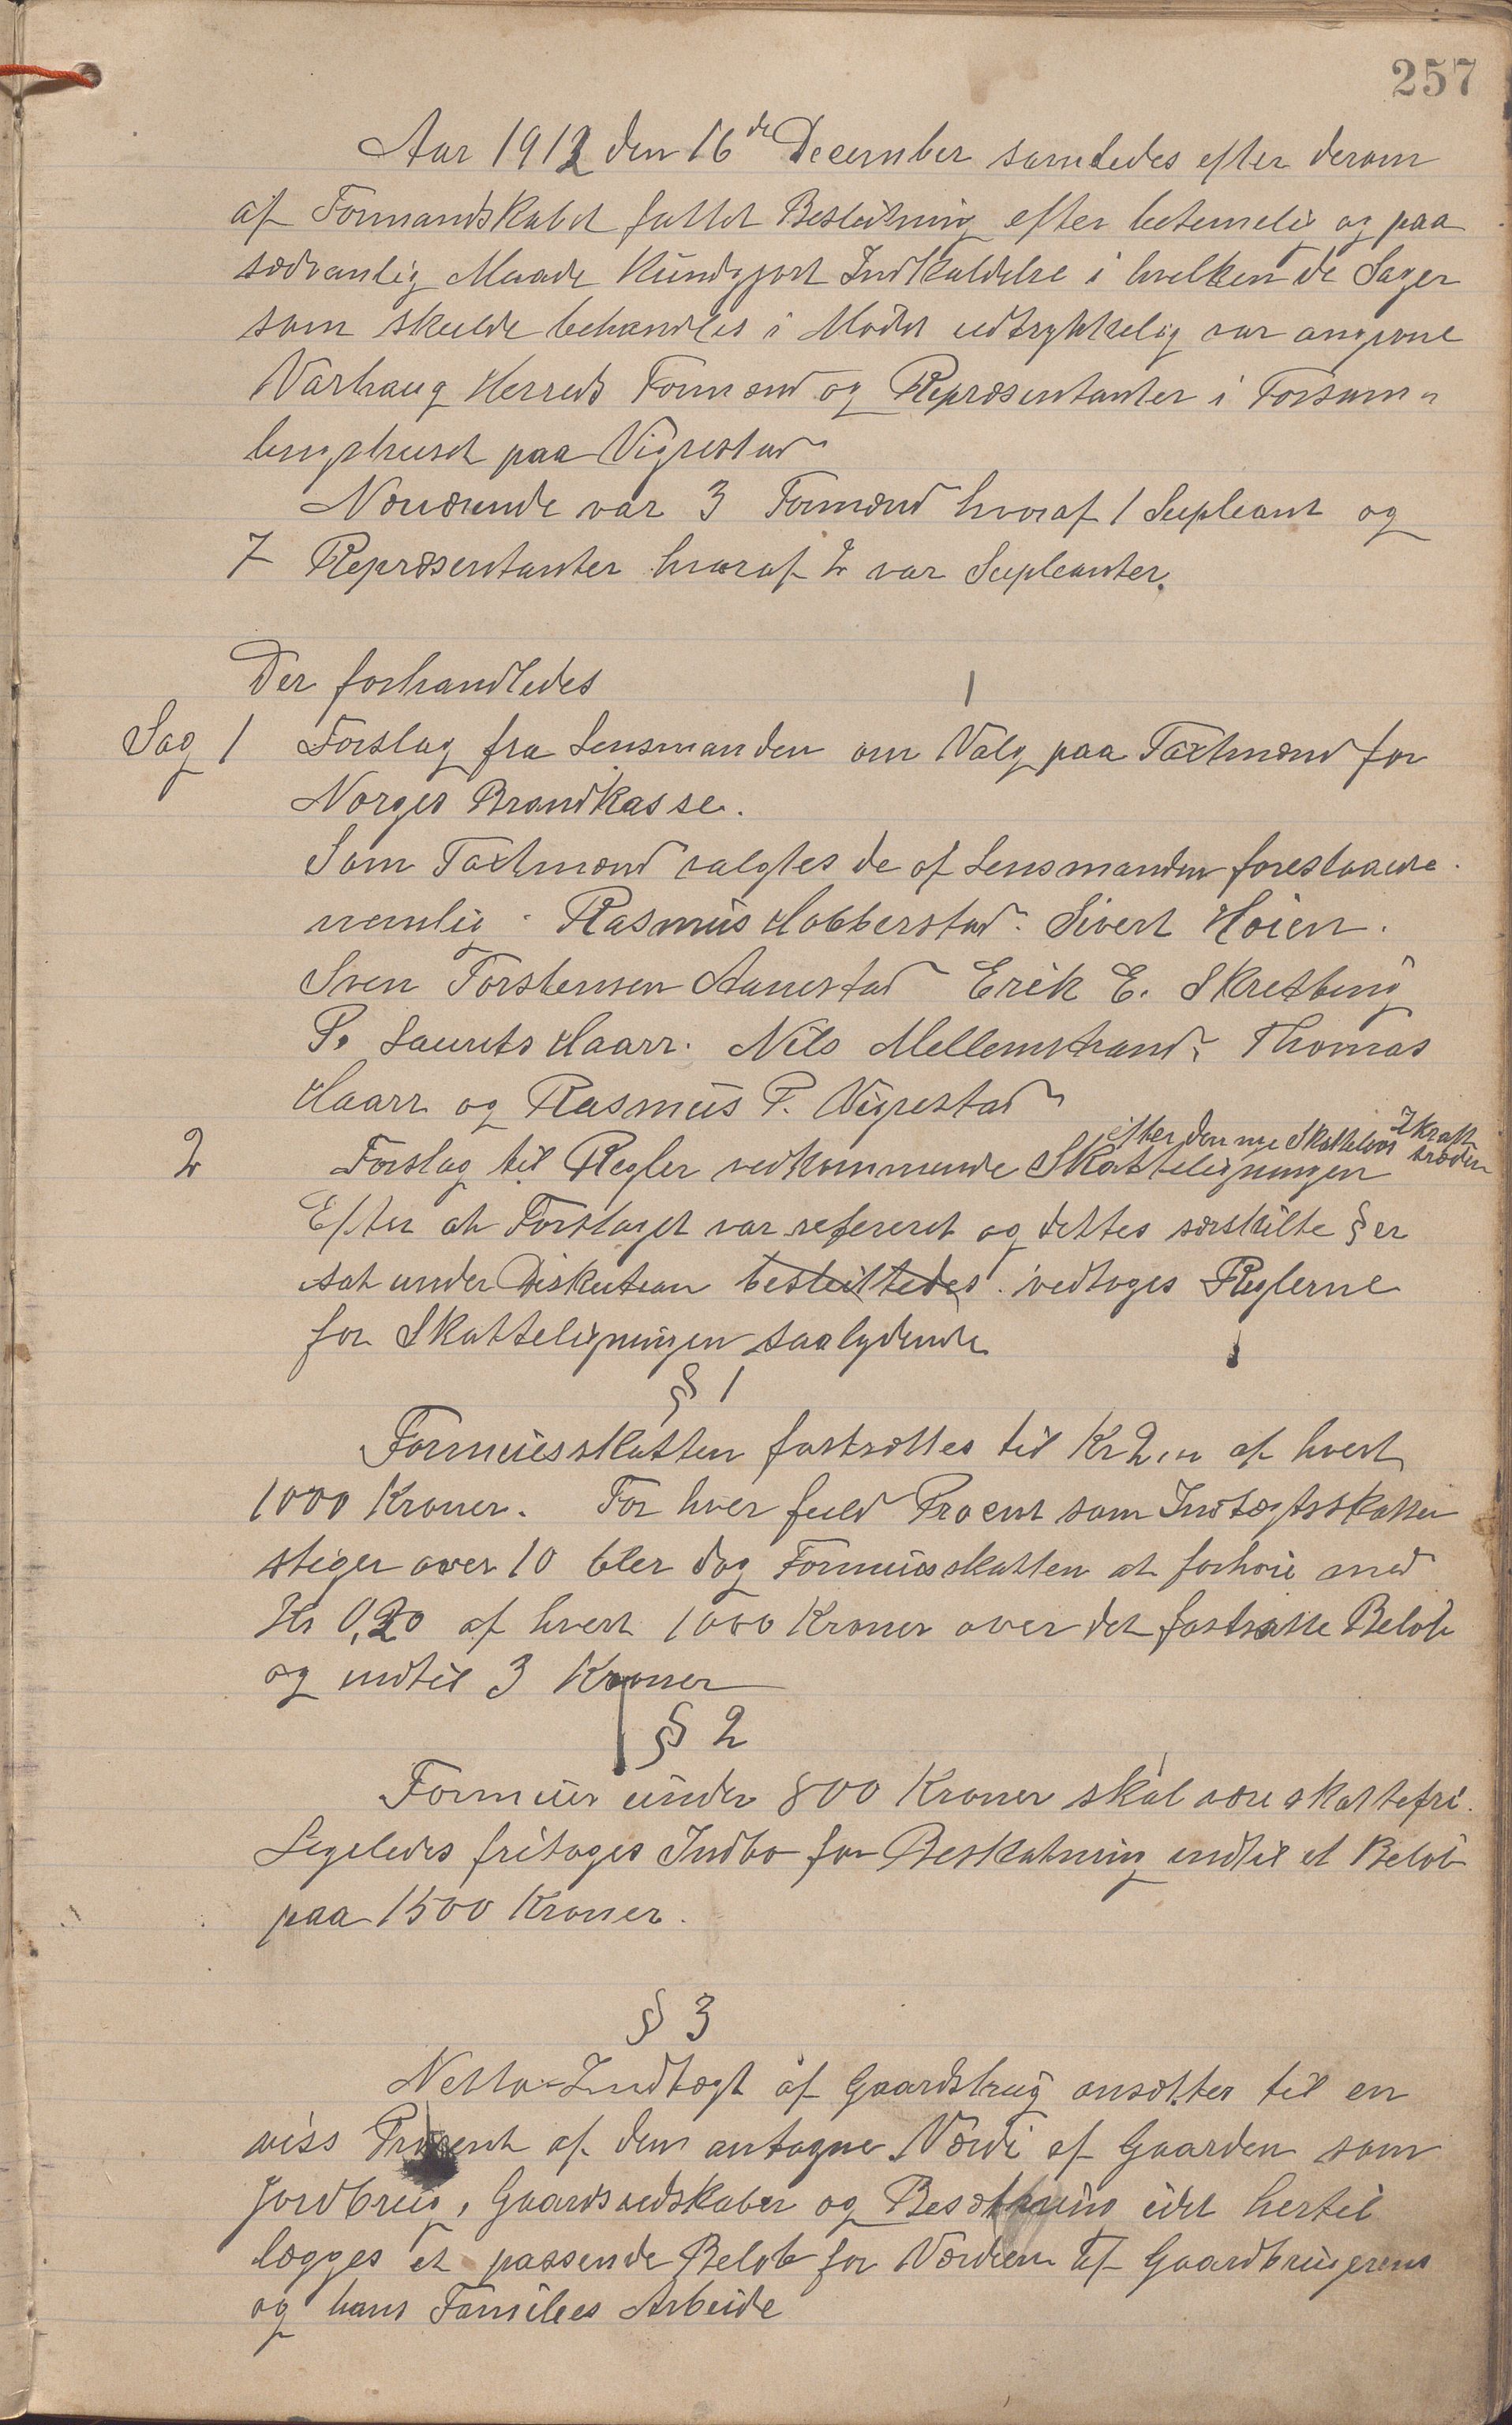 257
Aar 1912 den 16de December samledes efter derom
af Formandskabet fattet Beslutning efter betimelig og paa
sædvanlig Maade Kundgjort Indkaldelse i hvilken de Sager
som skulde behandles i Mødet udtrykkelig var angivne
Varhaug Herreds Formænd og Repræsentanter i Forsam-
lingshuset paa Vigrestad
Nærværende var 3 Formænd hvoraf 1 Supleant og
7 Repræsentanter hvoraf 2 var Supleanter.
Der forhandledes
Sag 1 Forslag fra Lensmanden om Valg paa Taxtmænd for
Norges Brandkasse.
Som Taxtmænd valgtes de af Lensmanden foreslaaede
nemlig Rasmus Hobberstad. Sivert Høien.
Sven Torstensen Aanestad Erik E. Skretting
P. Laurits Haarr. Nils Mellemstrand. Thomas
Haarr og Rasmus P. Vigrestad
efter den nye Skattelovs Ikraft
træden
2 Forslag til Regler vedkommende Skatteligningen
Efter at Forslaget var refereret og dettes særskilte § er
sat under Diskution besluttedes vedtoges Reglerne
for Skatteligningen saalydende
§ 1
Formuesskatten fastsættes til Kr 2,00 af hvert
1000 Kroner. For hver fuld Procent som Indtægtsskatten
stiger over 10 bler dog Formuesskatten at forhøie med
Kr 0,20 af hvert 1000 Kroner over det fastsatte Beløb
og indtil 3 Kroner
§ 2
Formuer under 800 Kroner skal være skattefri.
Ligeledes fritages Indbo for Beskatning indtil et Beløb
paa 1500 Kroner.
§ 3
Netto-Indtægt af Gaardsbrug ansættes til en
viss Procent af den antagne Værdi af Gaarden som
Jordbrug, Gaardsredskaber og Besætning idet hertil
lægges et passende Beløb for Værdien af Gaardbrugerens
og hans Familees Arbeide